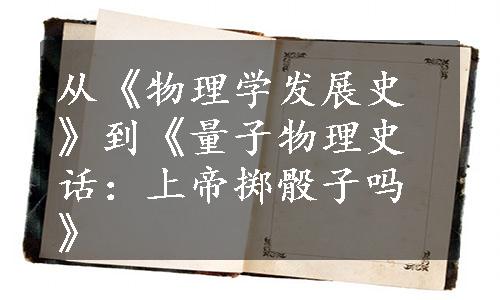 从《物理学发展史
》到《量子物理史
话：上帝掷骰子吗
》